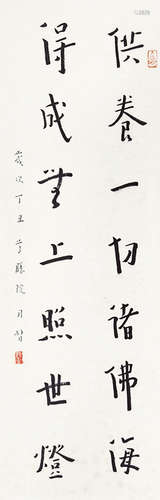 供養一切諸佛海
得成無上照世燈
歲次丁丑